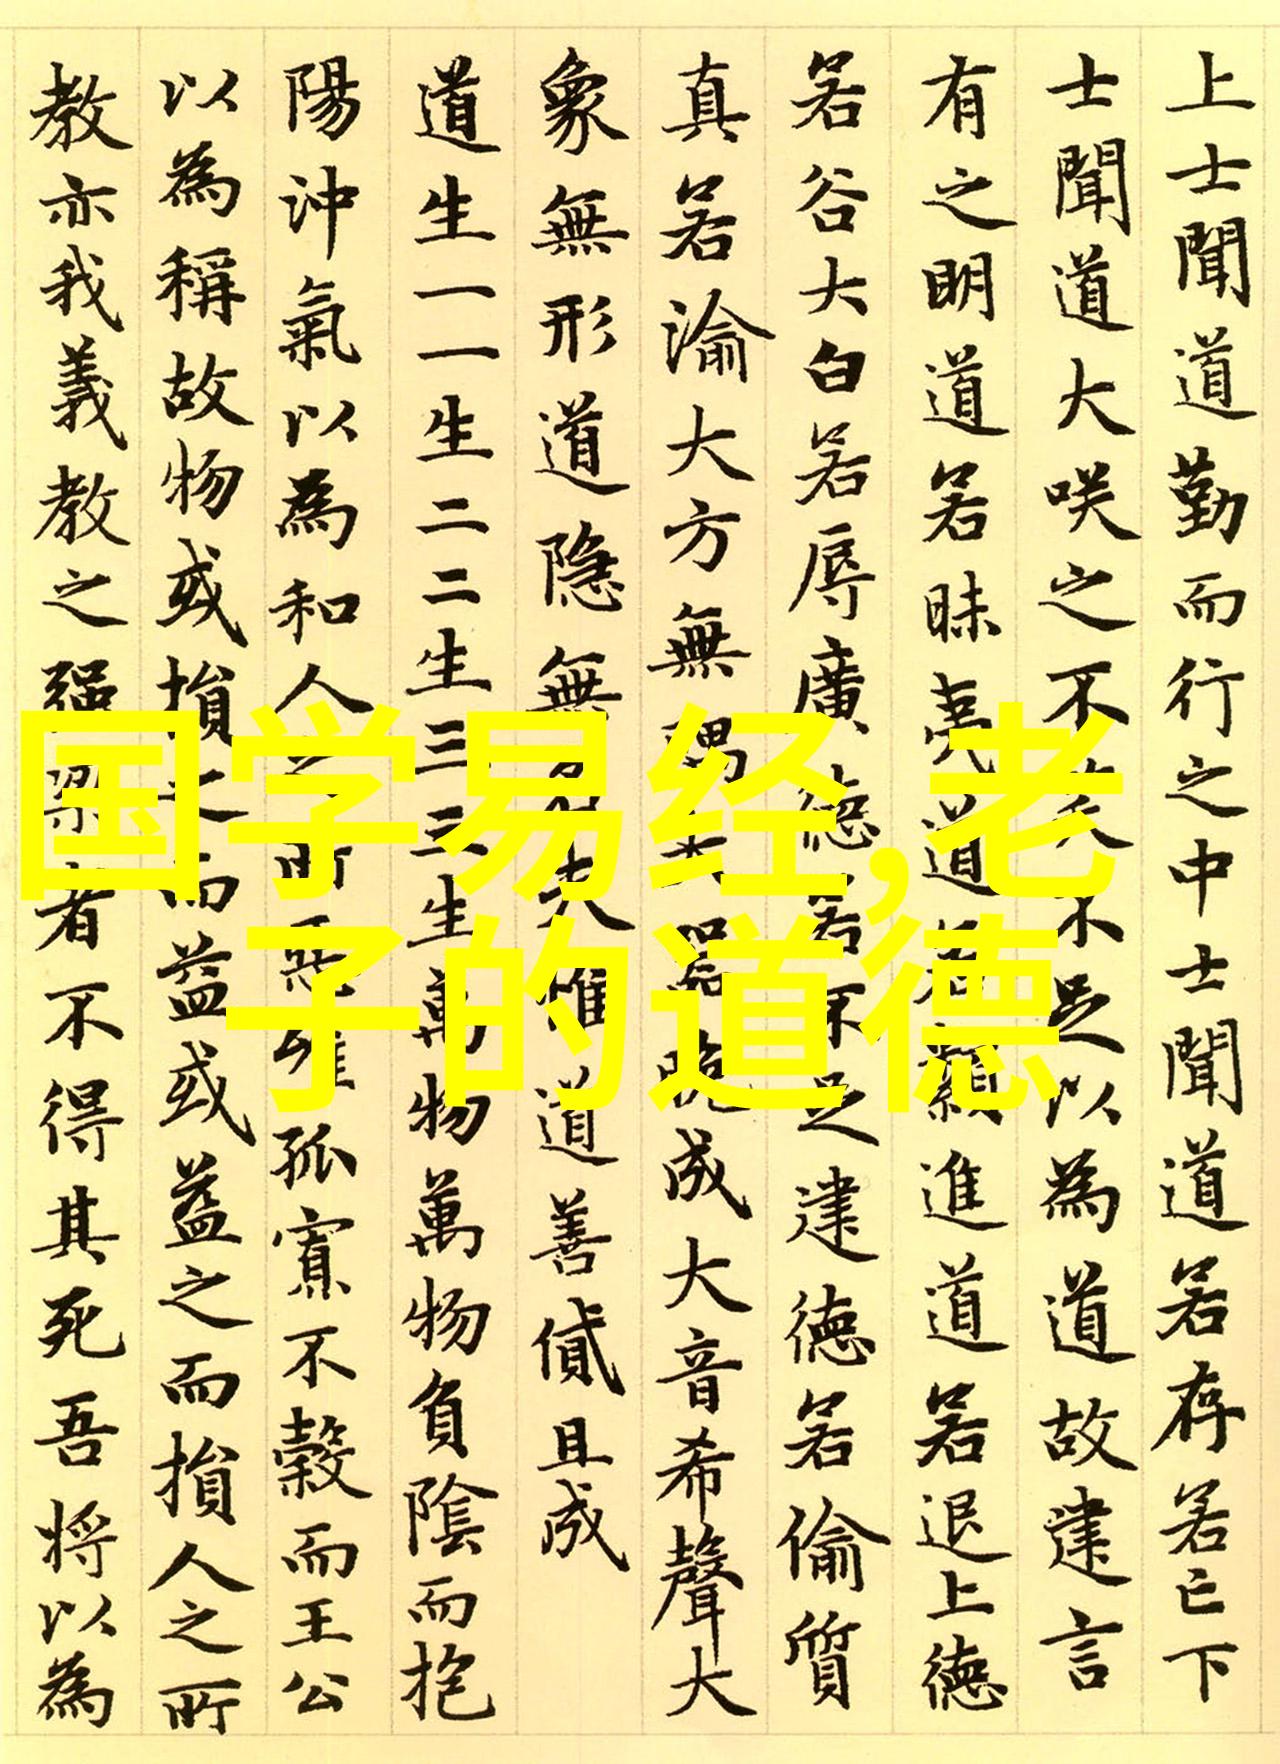 上士聞道勤而行之中士聞道若存若亡下
士聞道大咲之不笑不足以為道故建言
有之明道若昧夷道若纇進道若退上德
若谷大白若辱廣德若不足建德若偷質
真若渝大方無隅大器晚成大音希聲大
象無形道隐無名夫惟道善貸且成
道生一一生二二生三三生萬物萬物負陰而抱
陽沖氣以為和人之所惡唯孤寡不穀而王公
以為稱故物或損之而益或益之而損人之所
教亦我義教之强梁者不得其死吾將以為
国学易经,老
子的道德